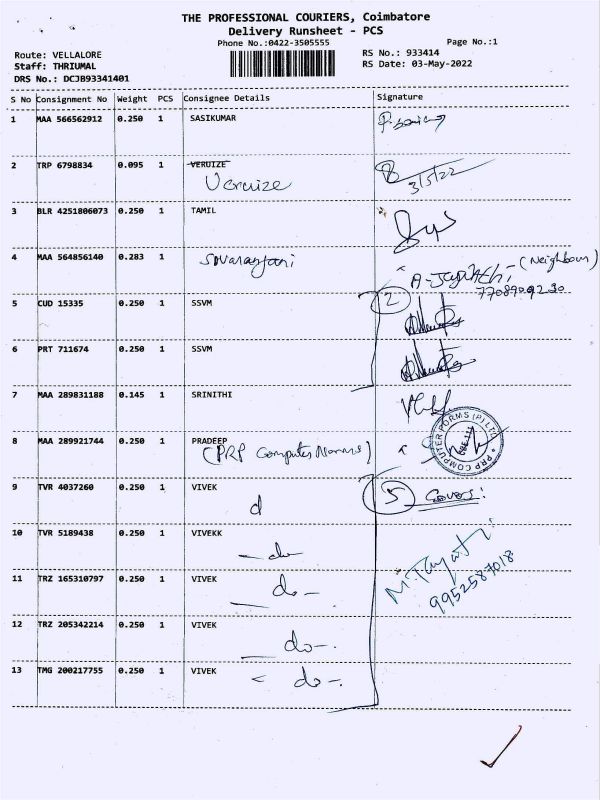 THE PROFESSIONAL COURIERS, Coimbatore
Delivery Runsheet - PCS
Phone No.:0422-3505555 Page No.:1
Route: VELLALORE RS No.: 933414
Staff: THRIUMAL RS Date: 03-May-2022
DRS No.: DCJB93341401
S No Consignment No Weight PCS Consignee Details Signature
1 MAA 566562912 0.250 1 SASIKUMAR
2 TRP 6798834 0.095 1 VERUIZE
Veruize 3/5/22
3 BLR 4251806073 0.250 1 TAMIL
4 MAA 564856140 0.283 1 (Neighbour)
7708909230
5 CUD 15335 0.250 1 SSVM 2
6 PRT 711674 0.250 1 SSVM
7 MAA 289831188 0.145 1 SRINITHI
8 MAA 289921744 0.250 1 PRADEEP
(PRP Computer Norms)
PRP COMPUTER FORMS (P) LTD
9 TVR 4037260 0.250 1 VIVEK 5 Covers!
d
10 TVR 5189438 0.250 1 VIVEKK
- do -
11 TRZ 165310797 0.250 1 VIVEK
- do -
9952587018
12 TRZ 205342214 0.250 1 VIVEK
- do -
13 TMG 200217755 0.250 1 VIVEK
- do -